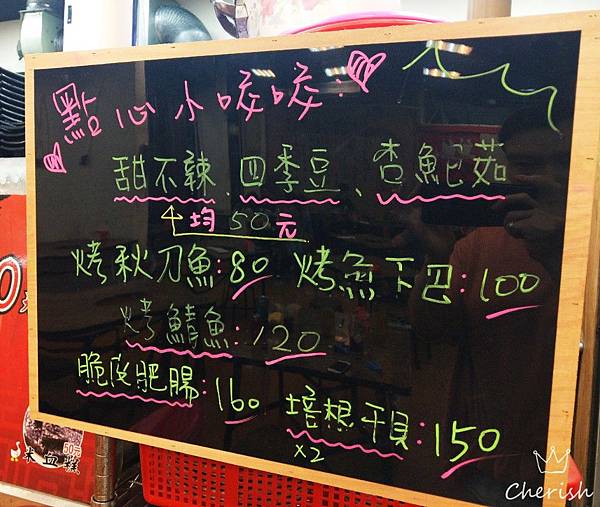 點心小咬咬
甜不辣、四季豆、杏鮑茹
均50元
烤秋刀魚:80 烤魚下巴:100
烤鯖魚:120
脆皮肥腸:160 培根干貝:150
x2
米血糕
50元
Cherish